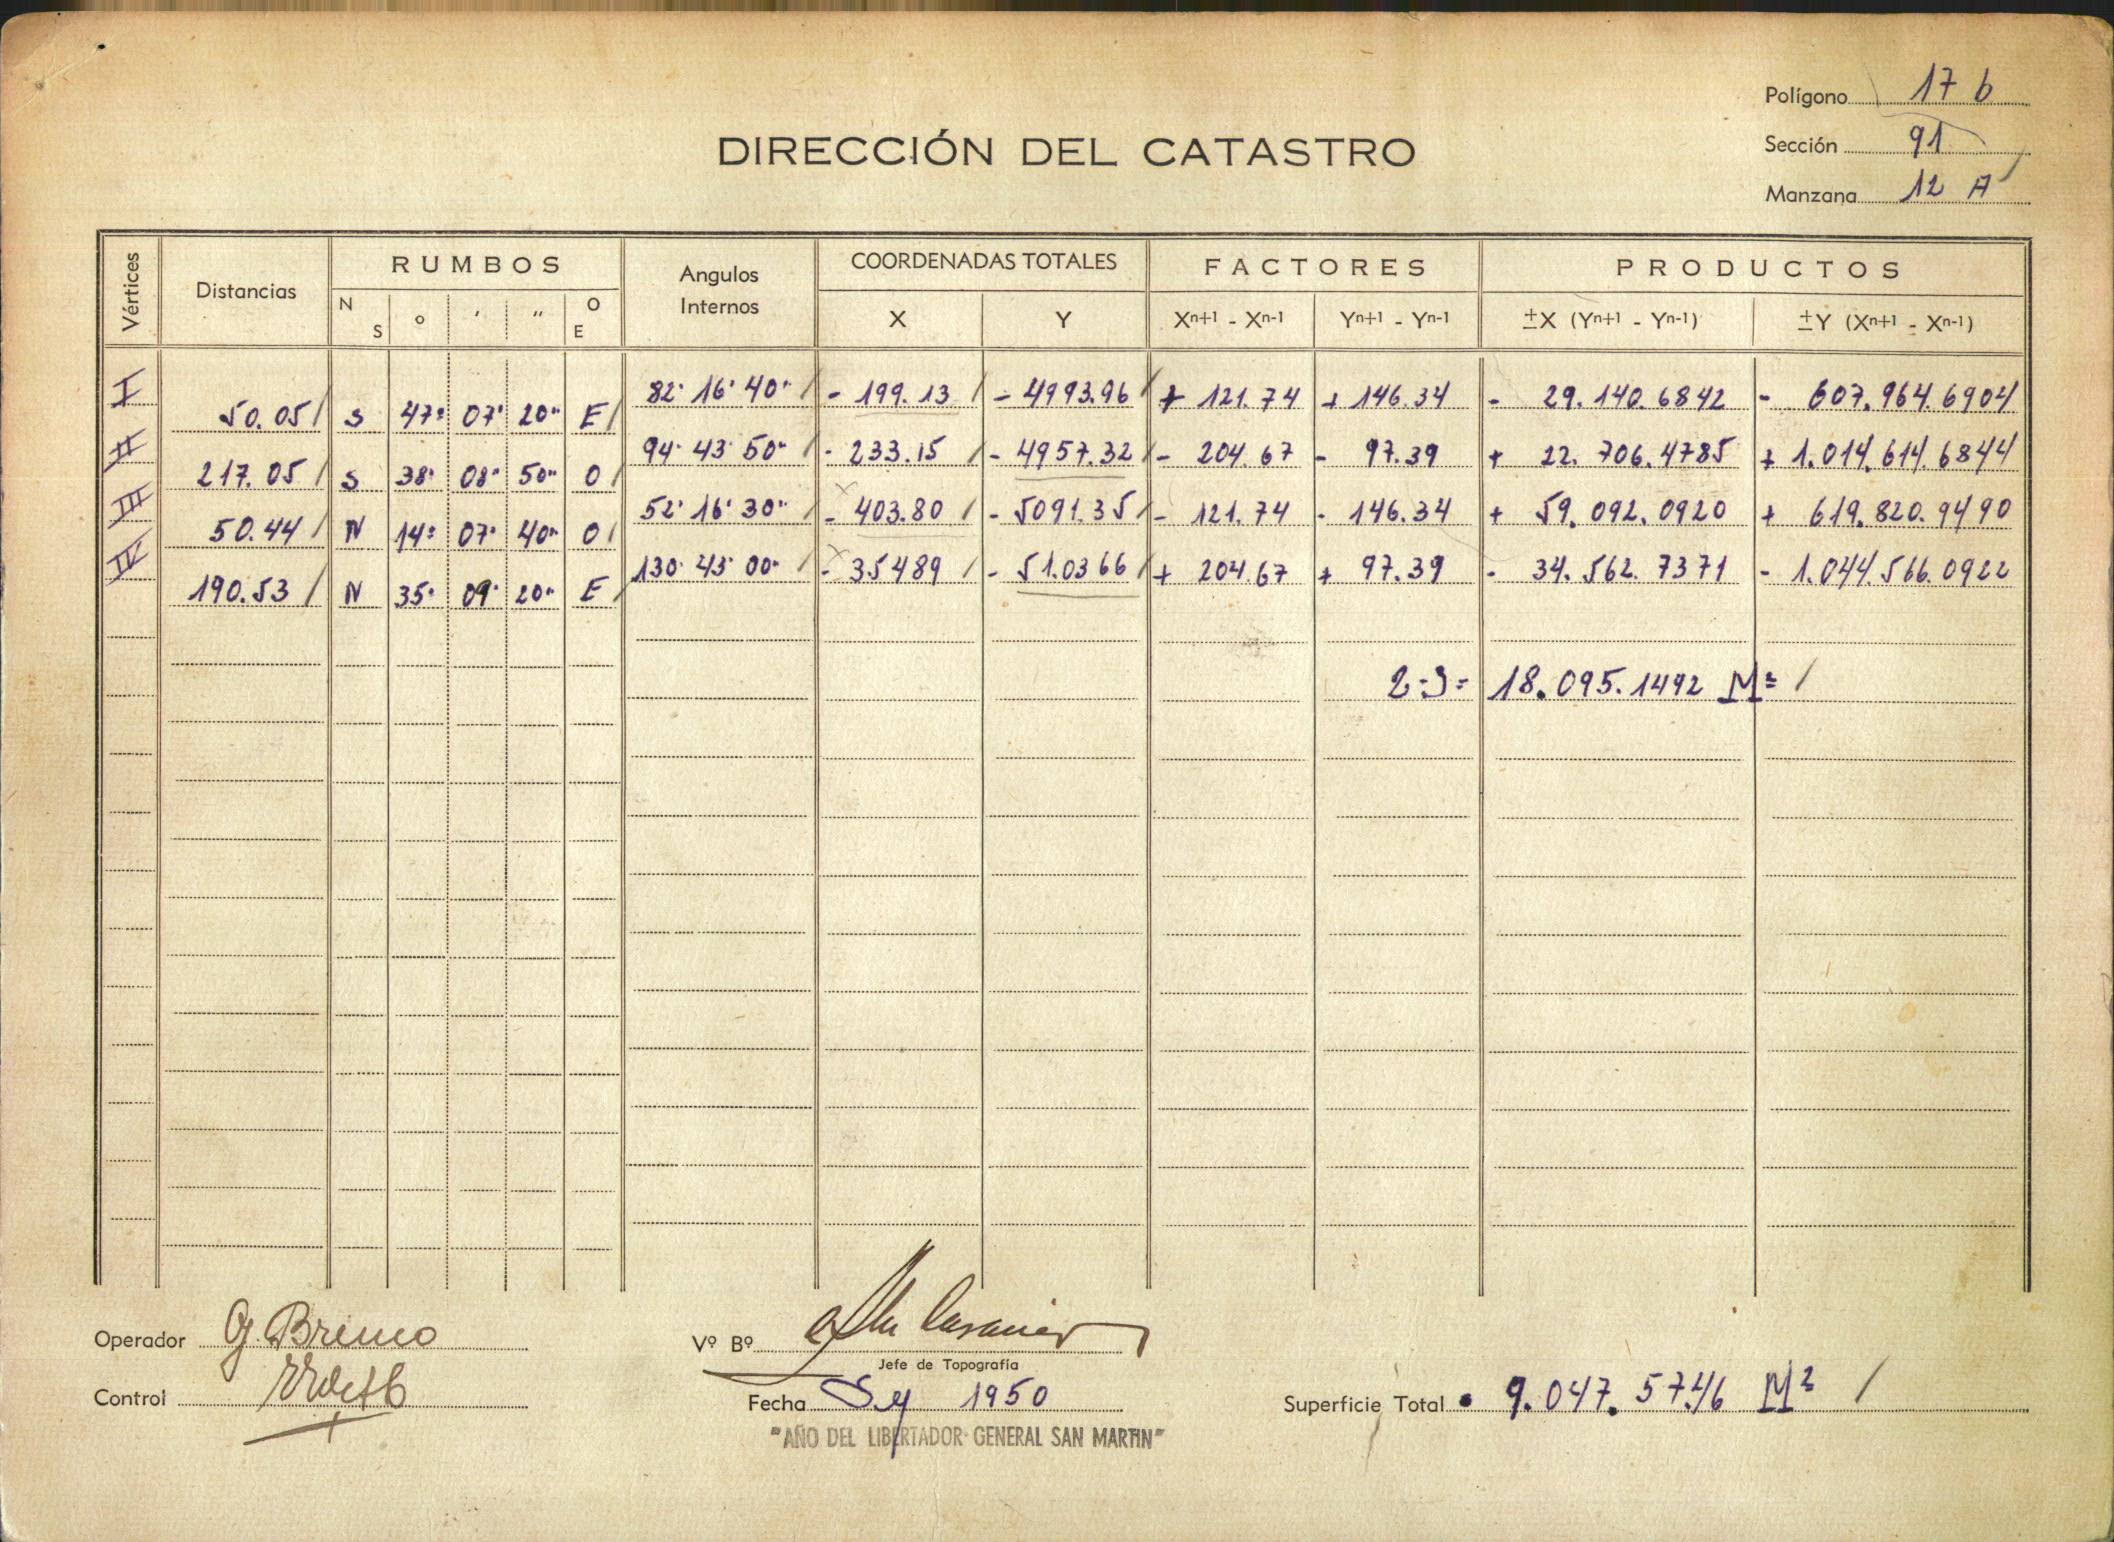 Polígono 17 b
DIRECCIÓN DEL CATASTRO
Sección 91
Manzana 12 A
Vértices Distancias RUMBOS N S o ' " O E Angulos Internos COORDENADAS TOTALES X Y FACTORES Xn+1 - Xn-1 Yn+1 - Yn-1 PRODUCTOS ±X (Yn+1 - Yn-1) ±Y (Xn+1 - Xn-1)
I 82° 16' 40" - 199.13 - 4993.96 + 121.74 + 146.34 - 29.140.6842 - 607.964.6904
50.05 S 47° 07' 20" E
II 94° 43' 50" - 233.15 - 4957.32 - 204.67 - 97.39 + 22.706.4785 + 1.014.614.6844
217.05 S 38° 08' 50" O
III 52° 16' 30" - 403.80 - 5091.35 - 121.74 - 146.34 + 59.092.0920 + 619.820.9490
50.44 N 14° 07' 40" O
IV 130° 43' 00" - 35489 - 51.0366 + 204.67 + 97.39 - 34.562.7371 - 1.044.566.0922
190.53 N 35° 09' 20" E
2.S= 18.095.1492 M²
Operador G. Bremo
Vº Bº
Jefe de Topografía
Control
Fecha 1950
Superficie Total 9.047.5746 M²
"AÑO DEL LIBERTADOR GENERAL SAN MARTIN"